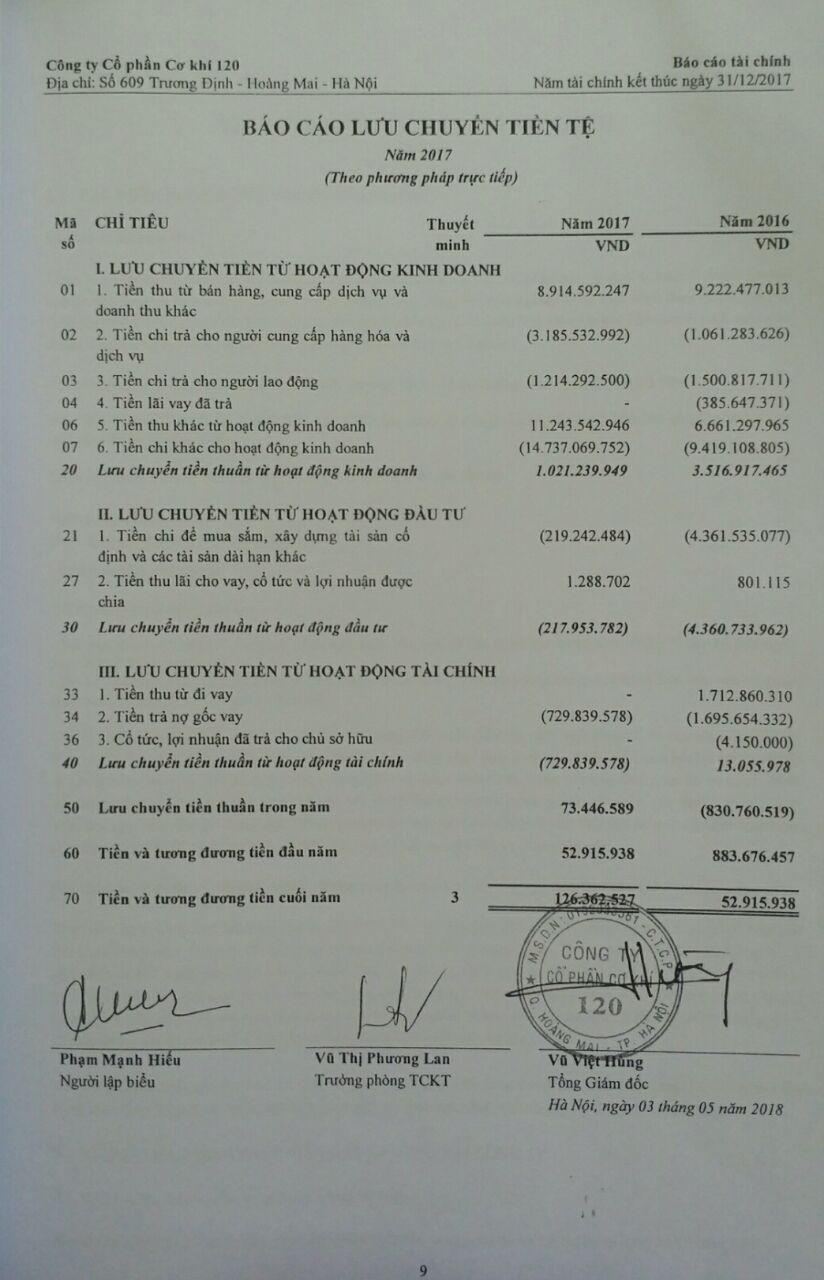 Công ty Cổ phần Cơ khí 120 Báo cáo tài chính
Địa chỉ: Số 609 Trương Định - Hoàng Mai - Hà Nội Năm tài chính kết thúc ngày 31/12/2017
BÁO CÁO LƯU CHUYỂN TIỀN TỆ
Năm 2017
(Theo phương pháp trực tiếp)
Mã CHỈ TIÊU Thuyết Năm 2017 Năm 2016
số minh VND VND
I. LƯU CHUYỂN TIỀN TỪ HOẠT ĐỘNG KINH DOANH
01 1. Tiền thu từ bán hàng, cung cấp dịch vụ và 8.914.592.247 9.222.477.013
doanh thu khác
02 2. Tiền chi trả cho người cung cấp hàng hóa và (3.185.532.992) (1.061.283.626)
dịch vụ
03 3. Tiền chi trả cho người lao động (1.214.292.500) (1.500.817.711)
04 4. Tiền lãi vay đã trả - (385.647.371)
06 5. Tiền thu khác từ hoạt động kinh doanh 11.243.542.946 6.661.297.965
07 6. Tiền chi khác cho hoạt động kinh doanh (14.737.069.752) (9.419.108.805)
20 Lưu chuyển tiền thuần từ hoạt động kinh doanh 1.021.239.949 3.516.917.465
II. LƯU CHUYỂN TIỀN TỪ HOẠT ĐỘNG ĐẦU TƯ
21 1. Tiền chi để mua sắm, xây dựng tài sản cố (219.242.484) (4.361.535.077)
định và các tài sản dài hạn khác
27 2. Tiền thu lãi cho vay, cổ tức và lợi nhuận được 1.288.702 801.115
chia
30 Lưu chuyển tiền thuần từ hoạt động đầu tư (217.953.782) (4.360.733.962)
III. LƯU CHUYỂN TIỀN TỪ HOẠT ĐỘNG TÀI CHÍNH
33 1. Tiền thu từ đi vay - 1.712.860.310
34 2. Tiền trả nợ gốc vay (729.839.578) (1.695.654.332)
36 3. Cổ tức, lợi nhuận đã trả cho chủ sở hữu - (4.150.000)
40 Lưu chuyển tiền thuần từ hoạt động tài chính (729.839.578) 13.055.978
50 Lưu chuyển tiền thuần trong năm 73.446.589 (830.760.519)
60 Tiền và tương đương tiền đầu năm 52.915.938 883.676.457
70 Tiền và tương đương tiền cuối năm 3 126.362.527 52.915.938
M.S.D.N: C.T.C.P
CÔNG TY
CỔ PHẦN CƠ KHÍ
120
Q. HOÀNG MAI - TP. HÀ NỘI
Phạm Mạnh Hiếu Vũ Thị Phương Lan Vũ Việt Hùng
Người lập biểu Trưởng phòng TCKT Tổng Giám đốc
Hà Nội, ngày 03 tháng 05 năm 2018
9